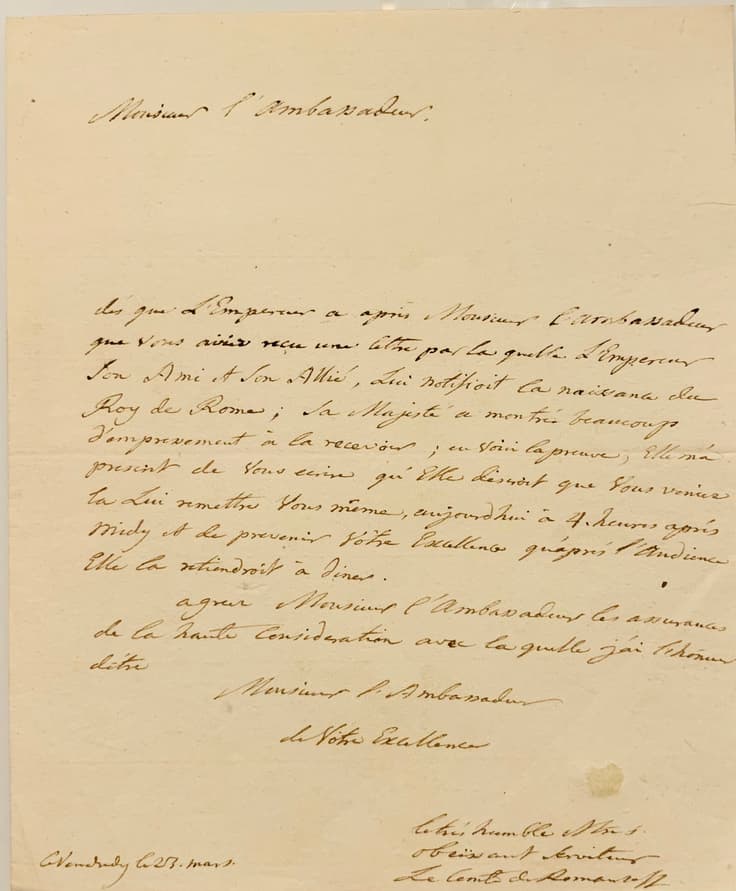 Monsieur l'Ambassadeur.
dès que L'Empereur a apris Monsieur l'ambassadeur
que vous aviez reçu une lettre par la quelle L'Empereur
Son Ami et Son Allié, Lui notifioit la naissance du
Roy de Rome; Sa Majesté a montrés beaucoup
d'empressement à la recevoir; en voici la preuve, Elle m'a
prescrit de Vous écrire qu'Elle désiroit que Vous veniez
la Lui remettre Vous même, aujourdhui à 4. heures après
Midy et de prevenir Vôtre Excellence qu'après l'Audience
Elle la retiendroit à diner.
agreez Monsieur l'Ambassadeur les assurances
de la haute Consideration avec la quelle j'ai l'honneur
d'être
Monsieur l'Ambassadeur
de Vôtre Excellence
le très humble et très
obeïssant serviteur
Le Comte de Romanzoff
ce Vendredy le 23. mars.